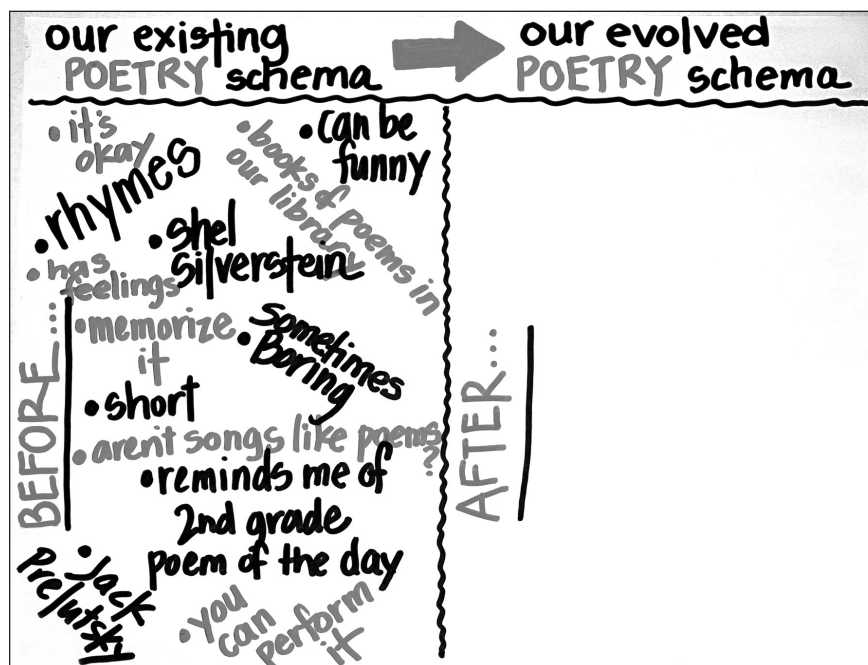 our existing
POETRY schema
our evolved
POETRY schema
BEFORE...
• it's
okay
• can be
funny
• books of poems in
our library
• rhymes
• shel
silverstein
• has
feelings
• memorize
it
• Sometimes
Boring
• short
• arent songs like poems
?
• reminds me of
2nd grade
poem of the day
• Jack
Prelutski
• you
can
perform
it
AFTER...